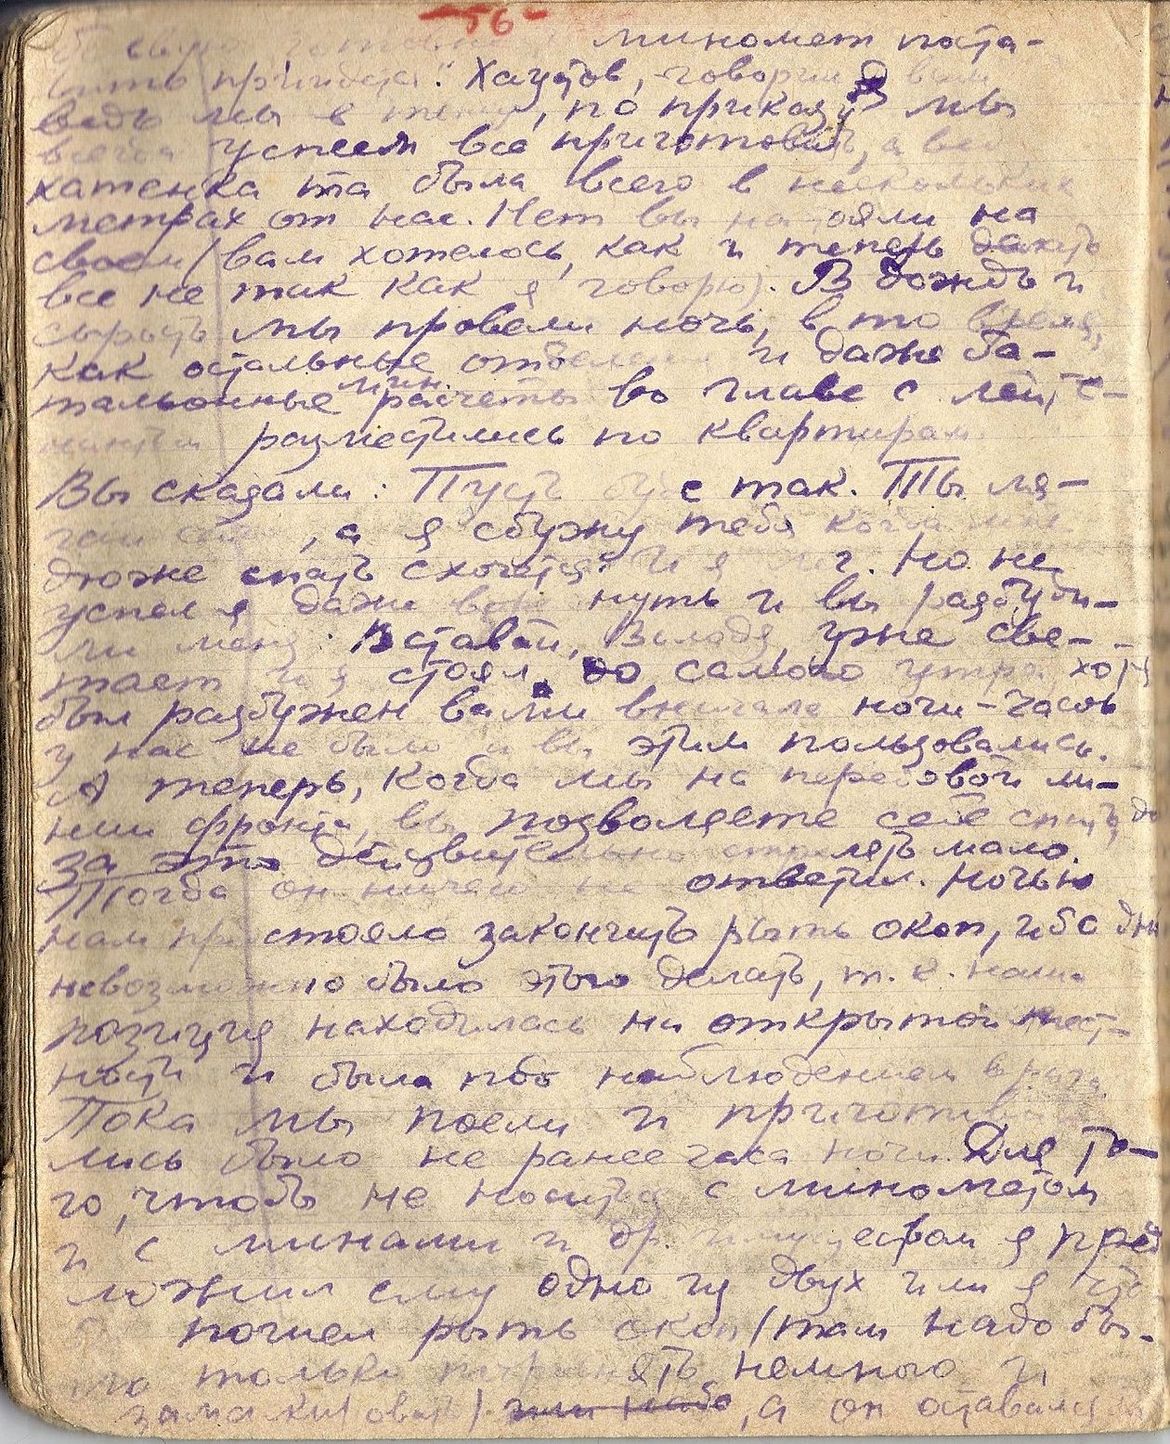 -56-
миномет поста-
вить придется". Хаустов, говорил я вам
ведь мы в тылу, по приказу мы
всегда успеем все приготовить, а ведь
хатенка та была всего в нескольких
метрах от нас. Нет вы настояли на
своем (вам хотелось, как и теперь делать
все не так как я говорю). В дождь и
сырость мы провели ночь, в то время,
как остальные отделения и даже ба-
тальонные мин. расчеты во главе с лейте-
нантом разместились по квартирам.
Вы сказали: Пусть будет так. Ты ля-
гай, а я сбужу тебя когда мне
дюже спать схочется." И я лег. Но не
успел я даже вздремнуть и вы разбуди-
ли меня: Вставай, Володя, уже све-
тает и я стоял до самого утра, хотя
был разбужен вами вначале ночи - часов
у нас не было и вы этим пользовались.
А теперь, когда мы на передовой ли-
нии фронта, вы позволяете себе спать, да
за это действительно стрелять мало.
Тогда он ничего не ответил. Ночью
нам предстояло закончить рыть окоп, ибо днем
невозможно было этого делать, т. к. наша
позиция находилась на открытой мест-
ности и была под наблюдением врага.
Пока мы поели и приготови-
лись было не ранее часа ночи. Для то-
го, чтоб не носиться с минометом
и с минами и др. имуществом я пред
ложил ему одно из двух или я
пошел рыть окоп (там надо бы-
ло только подровнять немного и
замаскировать) или надо, а он оставался